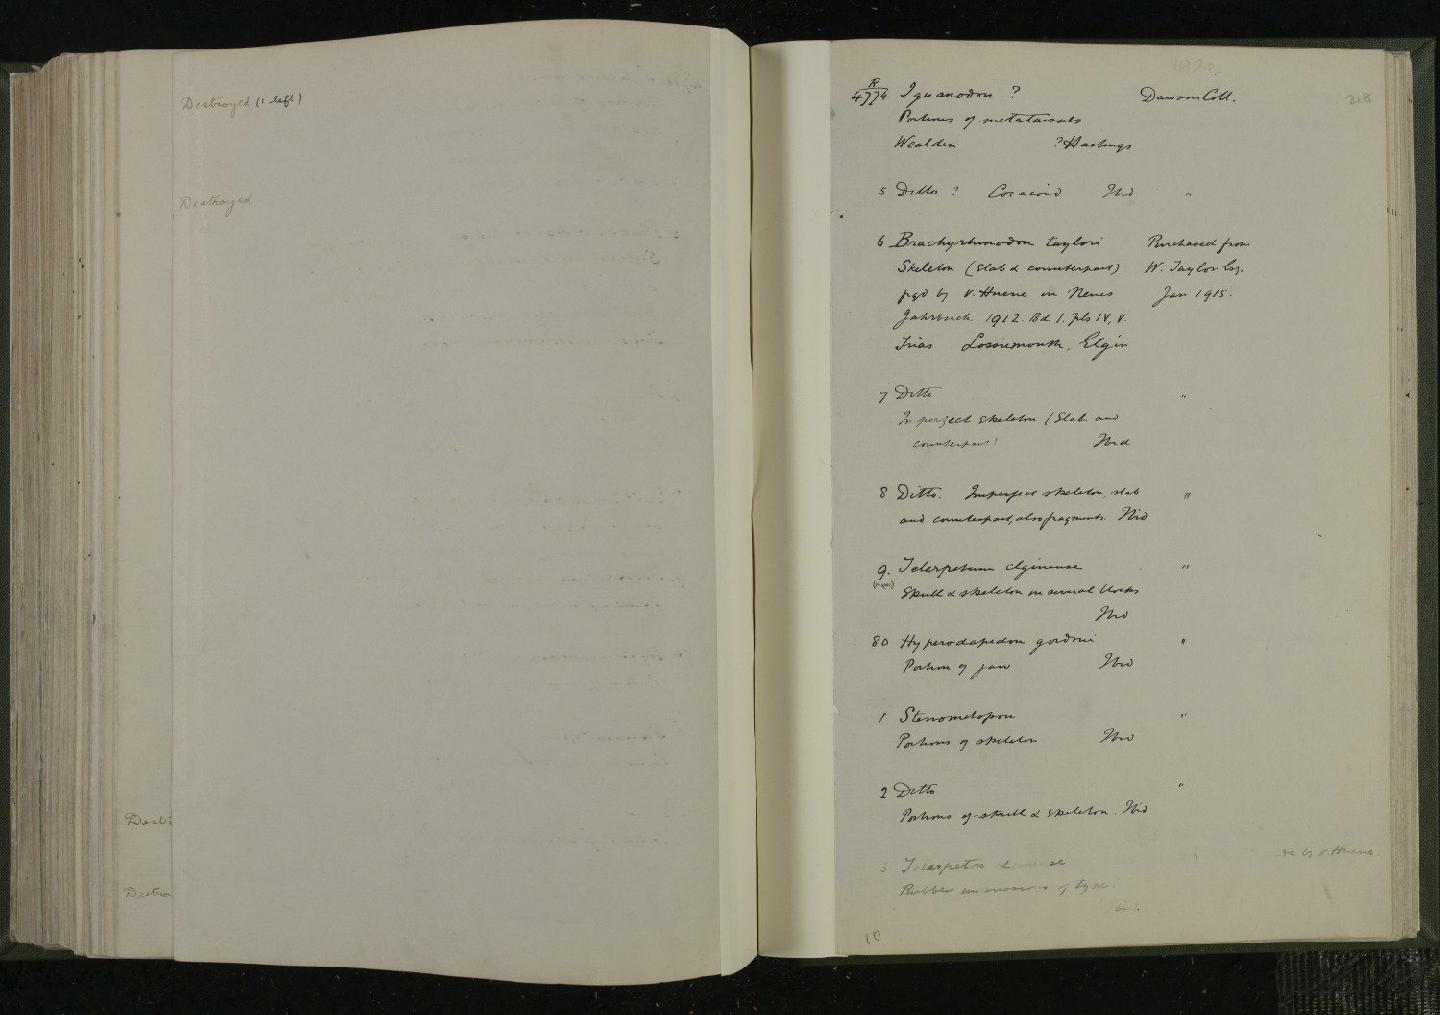 Destroyed (1 left)
Destroyed
Destr
Destro
1920
218
R
4774 Iguanodon ? Dawson Coll.
Portions of metatarsals
Wealden ? Hastings
5 Ditto ? Coracoid Ibid "
6 Brachyrhinodon taylori Purchased from
Skeleton (slab & counterpart) W. Taylor Esq.
figd by v. Huene in Neues Jan 1915.
Jahrbuch 1912. Bd 1. pls iv, v.
Trias Lossiemouth, Elgin
7 Ditto "
Imperfect skeleton (Slab and
counterpart) Ibid
8 Ditto. Imperfect skeleton, slab "
and counterpart, also fragments. Ibid
9. Telerpeton elginense "
Skull & skeleton in several blocks
Ibid
80 Hyperodapedon gordoni "
Portion of jaw Ibid
1 Stenometopon "
Portions of skeleton Ibid
2 Ditto "
Portions of skull & skeleton. Ibid
3 Telerpeton elginense by v. Huene
Rubber impressions of type.
10